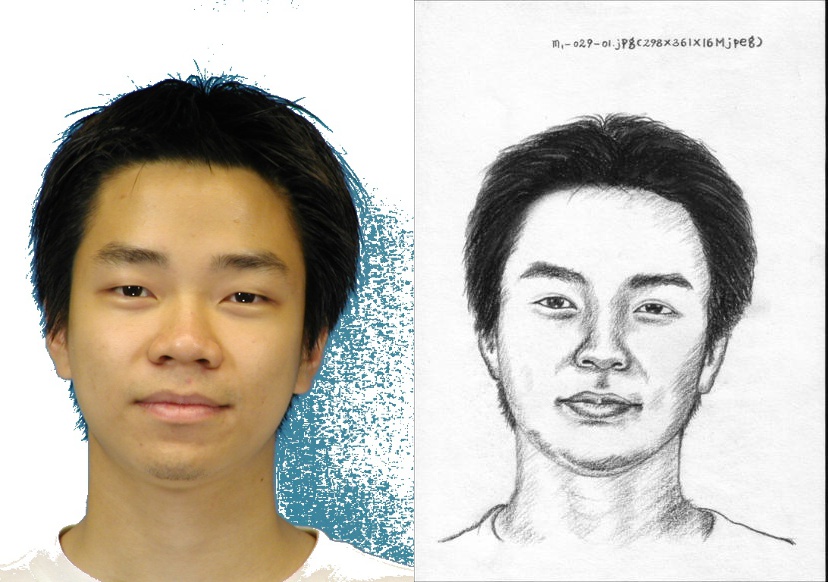 m1-029-01.jpg(298x361x16M jpeg)